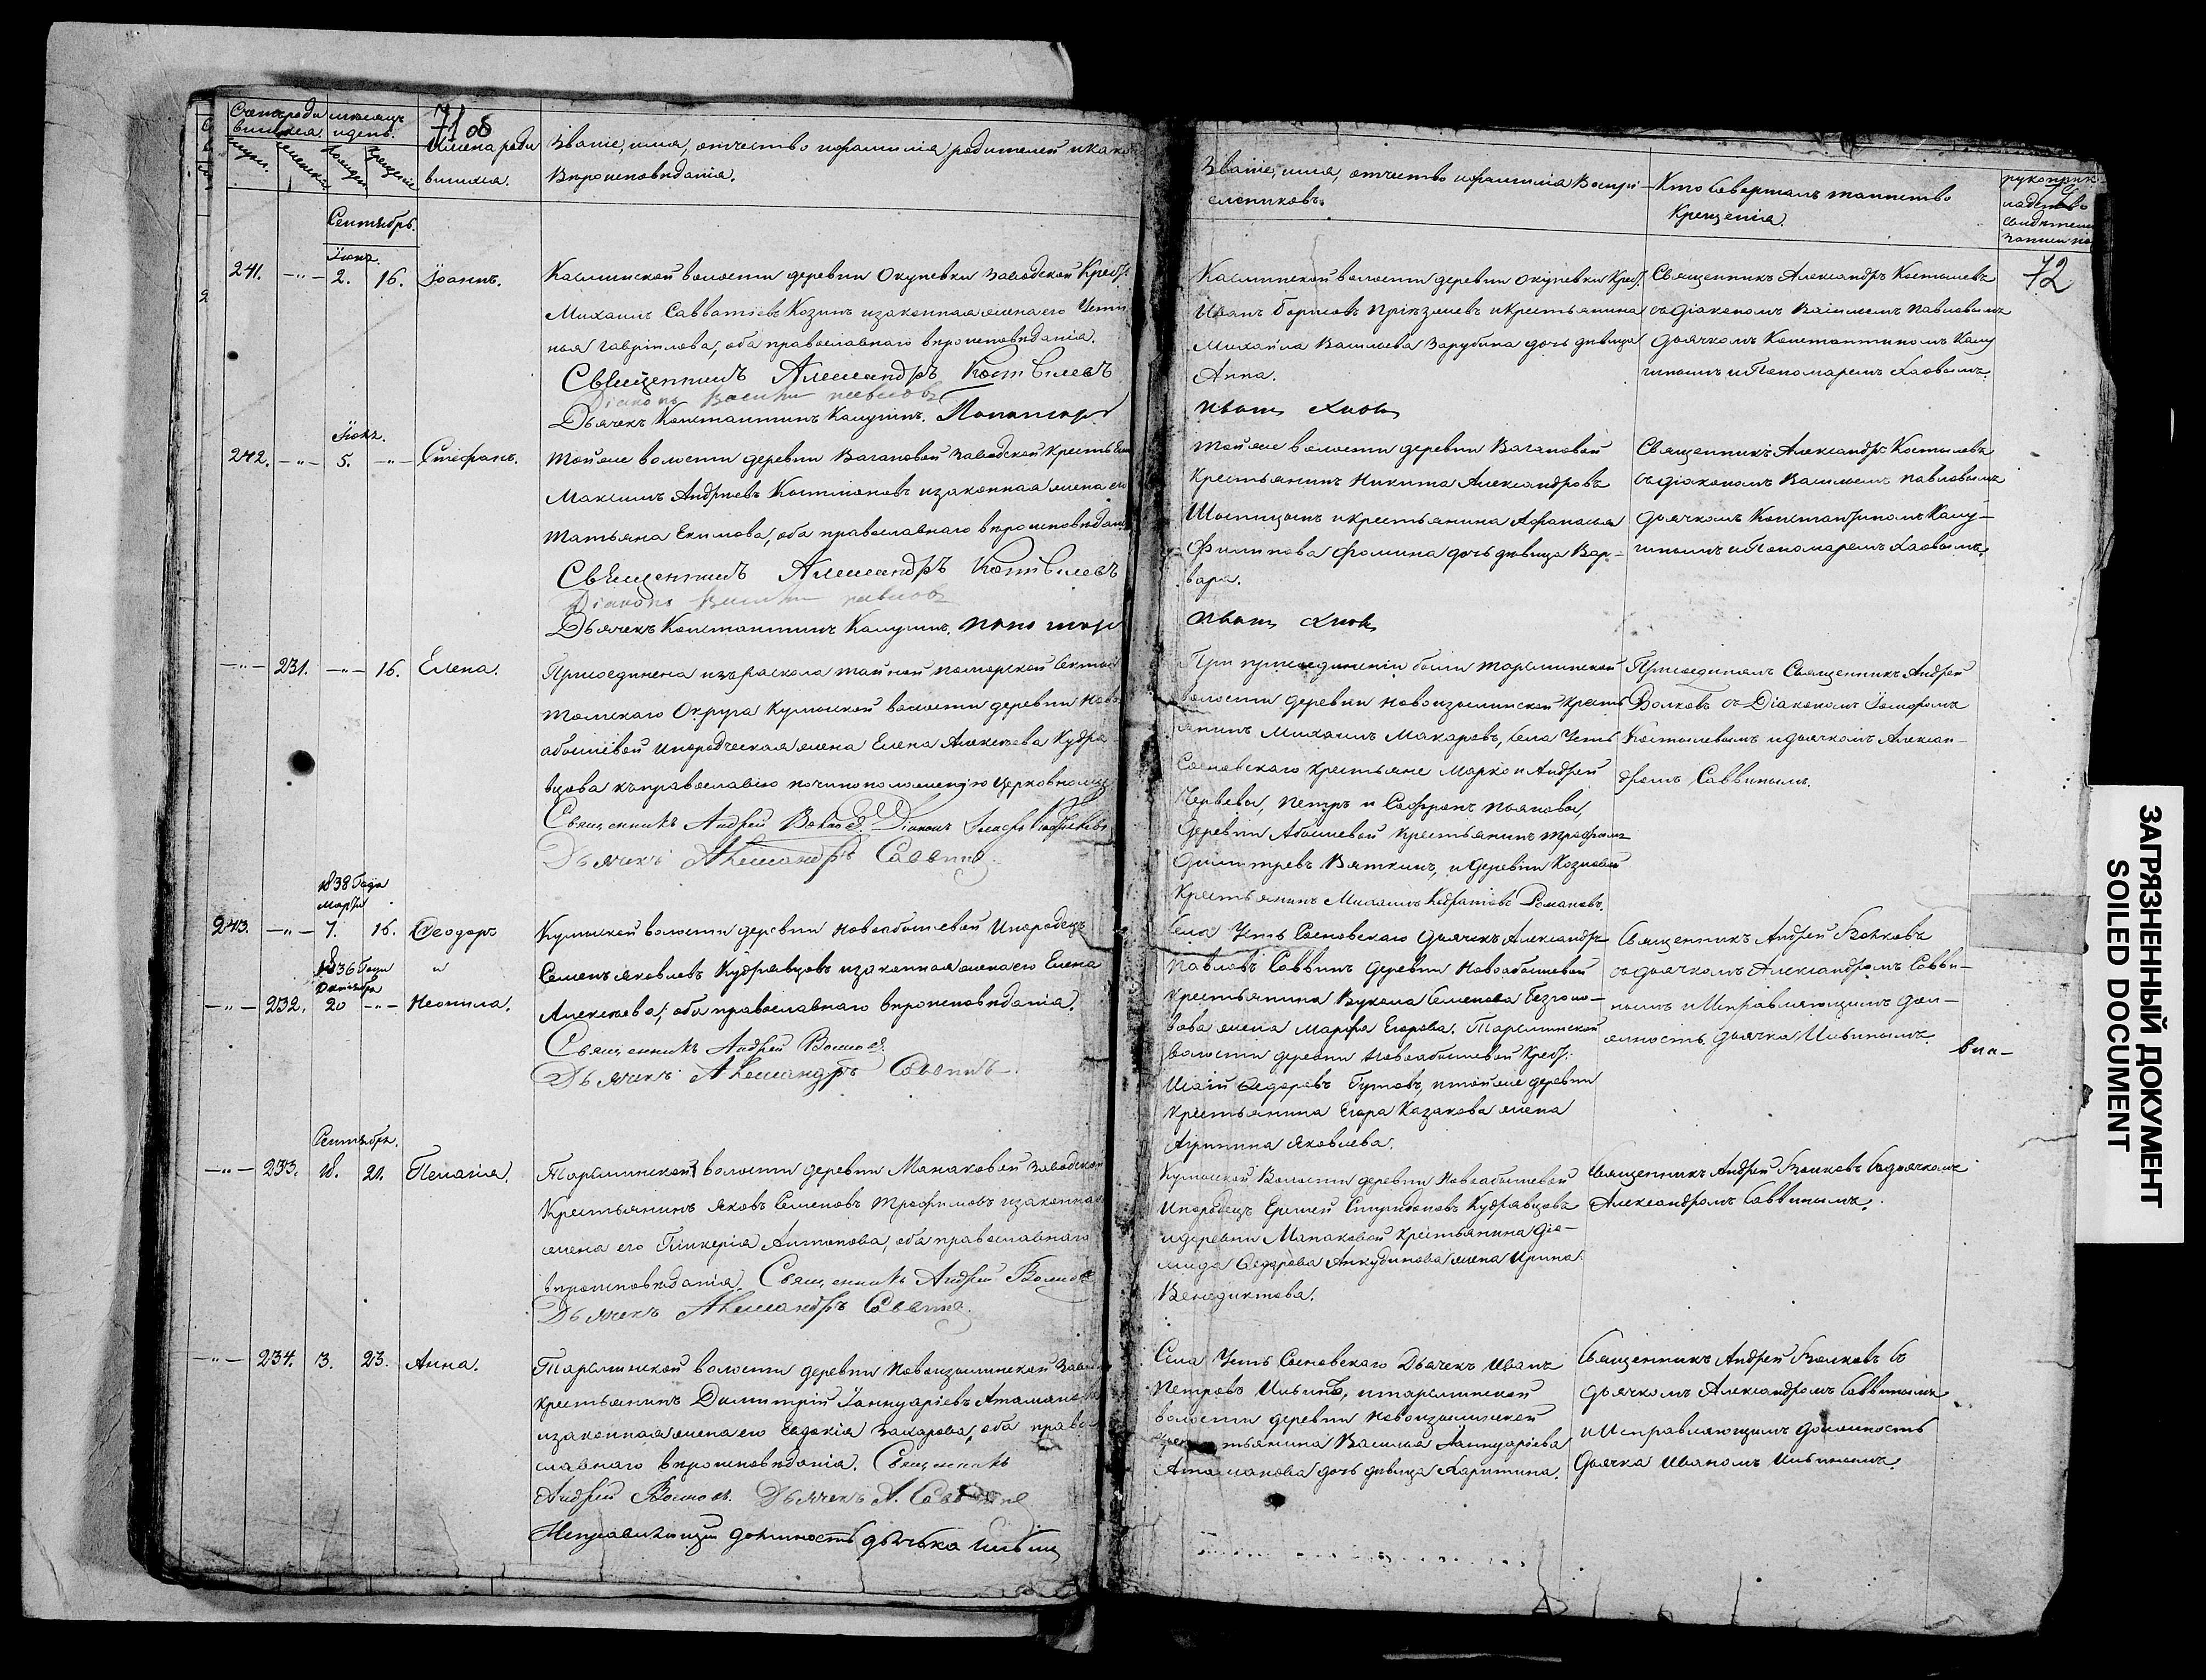 71 об
Счетъ роди
вшихся.
мѣсяцъ
и день.
Имена роди
вшихся.
Званіе, имя, отчество и фамилія родителей и како
Вѣроисповѣданія.
мужск.
женска.
рожден
крещенія
Сентябрь.
Іюня.
241. —"— 2. 16. Іоаннъ.
Касминской волости деревни Окуневки Заводской Крест:
Михаилъ Савватіевъ Козинъ и законная жена его Усти
нья Гаврилова, оба православнаго вѣроисповѣданія.
Священникъ Александръ Костылевъ
Діаконъ Василій Павловъ
Дьячекъ Константинъ Калугинъ. Пономарь
Іюня.
242. —"— 5. —"— Стефанъ.
Той же волости деревни Вагановой Заводской Крестьян
Максимъ Андреевъ и законная жена его
Татьяна Екимова, оба православнаго вѣроисповѣдан
Священникъ Александръ Костылевъ
Діаконъ Василій Павловъ
Дьячекъ Константинъ Калугинъ. Пономарь
—"— 231. —"— 16. Елена.
Присоединена изъ раскола тайной поморской секты
Томскаго Округа Кумыской волости деревни Ново
абышевой Инородческая жена Елена Алексѣева Кудря
вцова къ православію по чиноположенію Церковному
Священникъ Андрей Волковъ Діаконъ
Дьячекъ Александръ Саввинъ
1838 Года
Марта
243. —"— 7. 16. Ѳеодоръ
1836 Года
Октября
и
—"— 232. 20 —"— Неонила.
Кумыской волости деревни Новоабышевой Инородецъ
Семенъ Яковлевъ Кудрявцовъ и законная жена его Елена
Алексѣева, оба православнаго вѣроисповѣданія.
Священникъ Андрей Волковъ
Дьячекъ Александръ Саввинъ.
Сентябрь.
—"— 233. 18. 21. Пелагія.
Тарсминской волости деревни Манаковой Заводской
Крестьянинъ Яковъ Семеновъ Трофимовъ и законная
жена его Гликерія Антонова, оба православнаго
вѣроисповѣданія. Священникъ Андрей Волковъ
Дьячекъ Александръ Саввинъ.
—"— 234. 13. 23. Анна.
Тарсминской волости деревни Новоизылинской Заво
крестьянинъ Димитрій Іаннуаріевъ Атамановъ
и законная жена его Евдокія Захарова, оба право
славнаго вѣроисповѣданія. Священникъ
Андрей Волковъ. Дьячекъ А. Саввинъ
Исправляющій должность дьячка Ильинъ
Званіе, имя, отчество и фамилія Воспрі
емниковъ.
Кто совершалъ таинство
Крещенія.
рукоприк
ладство
свидѣтелей
записи по
72
Касминской волости деревни Окуневки Крест.
Иванъ Борисовъ и крестьянина
Михаила Васильева Зарубина дочь дѣвица
Анна.
Иванъ Хаовъ
Священникъ Александръ Костылевъ
съ Діакономъ Васильемъ Павловымъ
дьячкомъ Константиномъ Калу
гинымъ и Пономаремъ Хаовымъ.
Той же волости деревни Вагановой
Крестьянинъ Никита Александровъ
и крестьянина Афанасья
Филипова Фомина дочь дѣвица Вар-
вара.
Иванъ Хаовъ
Священникъ Александръ Костылевъ
съ діакономъ Васильемъ Павловымъ
дьячкомъ Константиномъ Калу-
гинымъ и Пономаремъ Хаовымъ.
При присоединеніи были Тарсминской
волости деревни Новоизылинской Кресть
янинъ Михаилъ Макаровъ, села Усть
Сосновскаго крестьяне Марко и Андрей
Червевы, Петръ и Софронъ Пьяновы,
деревни Абышевой крестьянинъ Трофимъ
Димитревъ Вяткинъ, и деревни Козловой
Крестьянинъ Михаилъ Кодратіевъ Романовъ.
Присоединялъ Священникъ Андрей
Волковъ съ Діакономъ Іосифомъ
Костылевымъ и дьячкомъ Алексан-
дромъ Саввинымъ.
Села Усть Сосновскаго дьячекъ Александръ
Павловъ Саввинъ деревни Новоабышевой
Крестьянина Вукола Семенова Безголо-
вова жена Марфа Егорова. Тарсминской
волости деревни Новоабышевой Крест:
Исаій Ѳедоровъ Бутовъ, и той же деревни
крестьянина Егора Казакова жена
Агрипина Яковлева.
Священникъ Андрей Волковъ
съ дьячкомъ Александромъ Савви-
нымъ и Исправляющимъ дол-
жность дьячка Ильинымъ.
Кумыской Волости деревни Новоабышевой
Инородецъ Ермей Спиридоновъ Кудрявцовъ
и деревни Манаковой крестьянина Діо-
мида Ѳедорова Анкудинова жена Ирина
Венедиктова.
Священникъ Андрей Волковъ съ дьячкомъ
Александромъ Саввинымъ.
Села Усть Сосновскаго Дьячекъ Иванъ
Петровъ Ильинъ, и Тарсминской
волости деревни Новоизылинской
крестьянина Василья Іаннуаріева
Атаманова дочь дѣвица Харитина.
Священникъ Андрей Волковъ съ
дьячкомъ Александромъ Саввинымъ
и Исправляющимъ должность
дьячка Иваномъ Ильинымъ.
ЗАГРЯЗНЕННЫЙ ДОКУМЕНТ
SOILED DOCUMENT